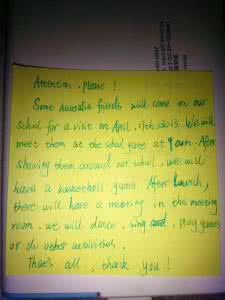 Attention, please!
Some Australia friends will come to our
school for a visit on April. 17th, 2015. We will
meet them at the school gate at 9am. After
showing them around our school, we will
have a basketball game. After lunch,
there will have a meeting in the meeting
room. we will dance, sing and play games
or do other activities.
That's all, thank you!